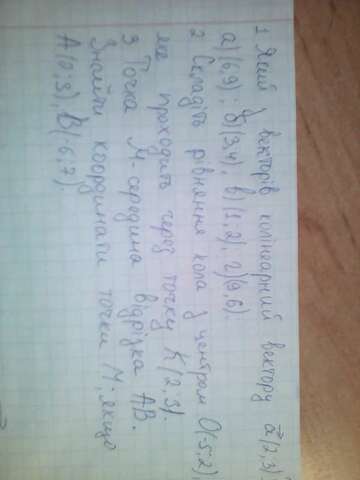 1 Який з векторів колінеарний вектору a(2,3)?
а) (6,9); б) (3,4); в) (1,2); г) (9,6).
2 Складіть рівняння кола з центром О(-5;2),
яке проходить через точку К(2,3).
3 Точка М-середина відрізка АВ.
Знайти координати точки М, якщо
А(0;3), В(-6;7).